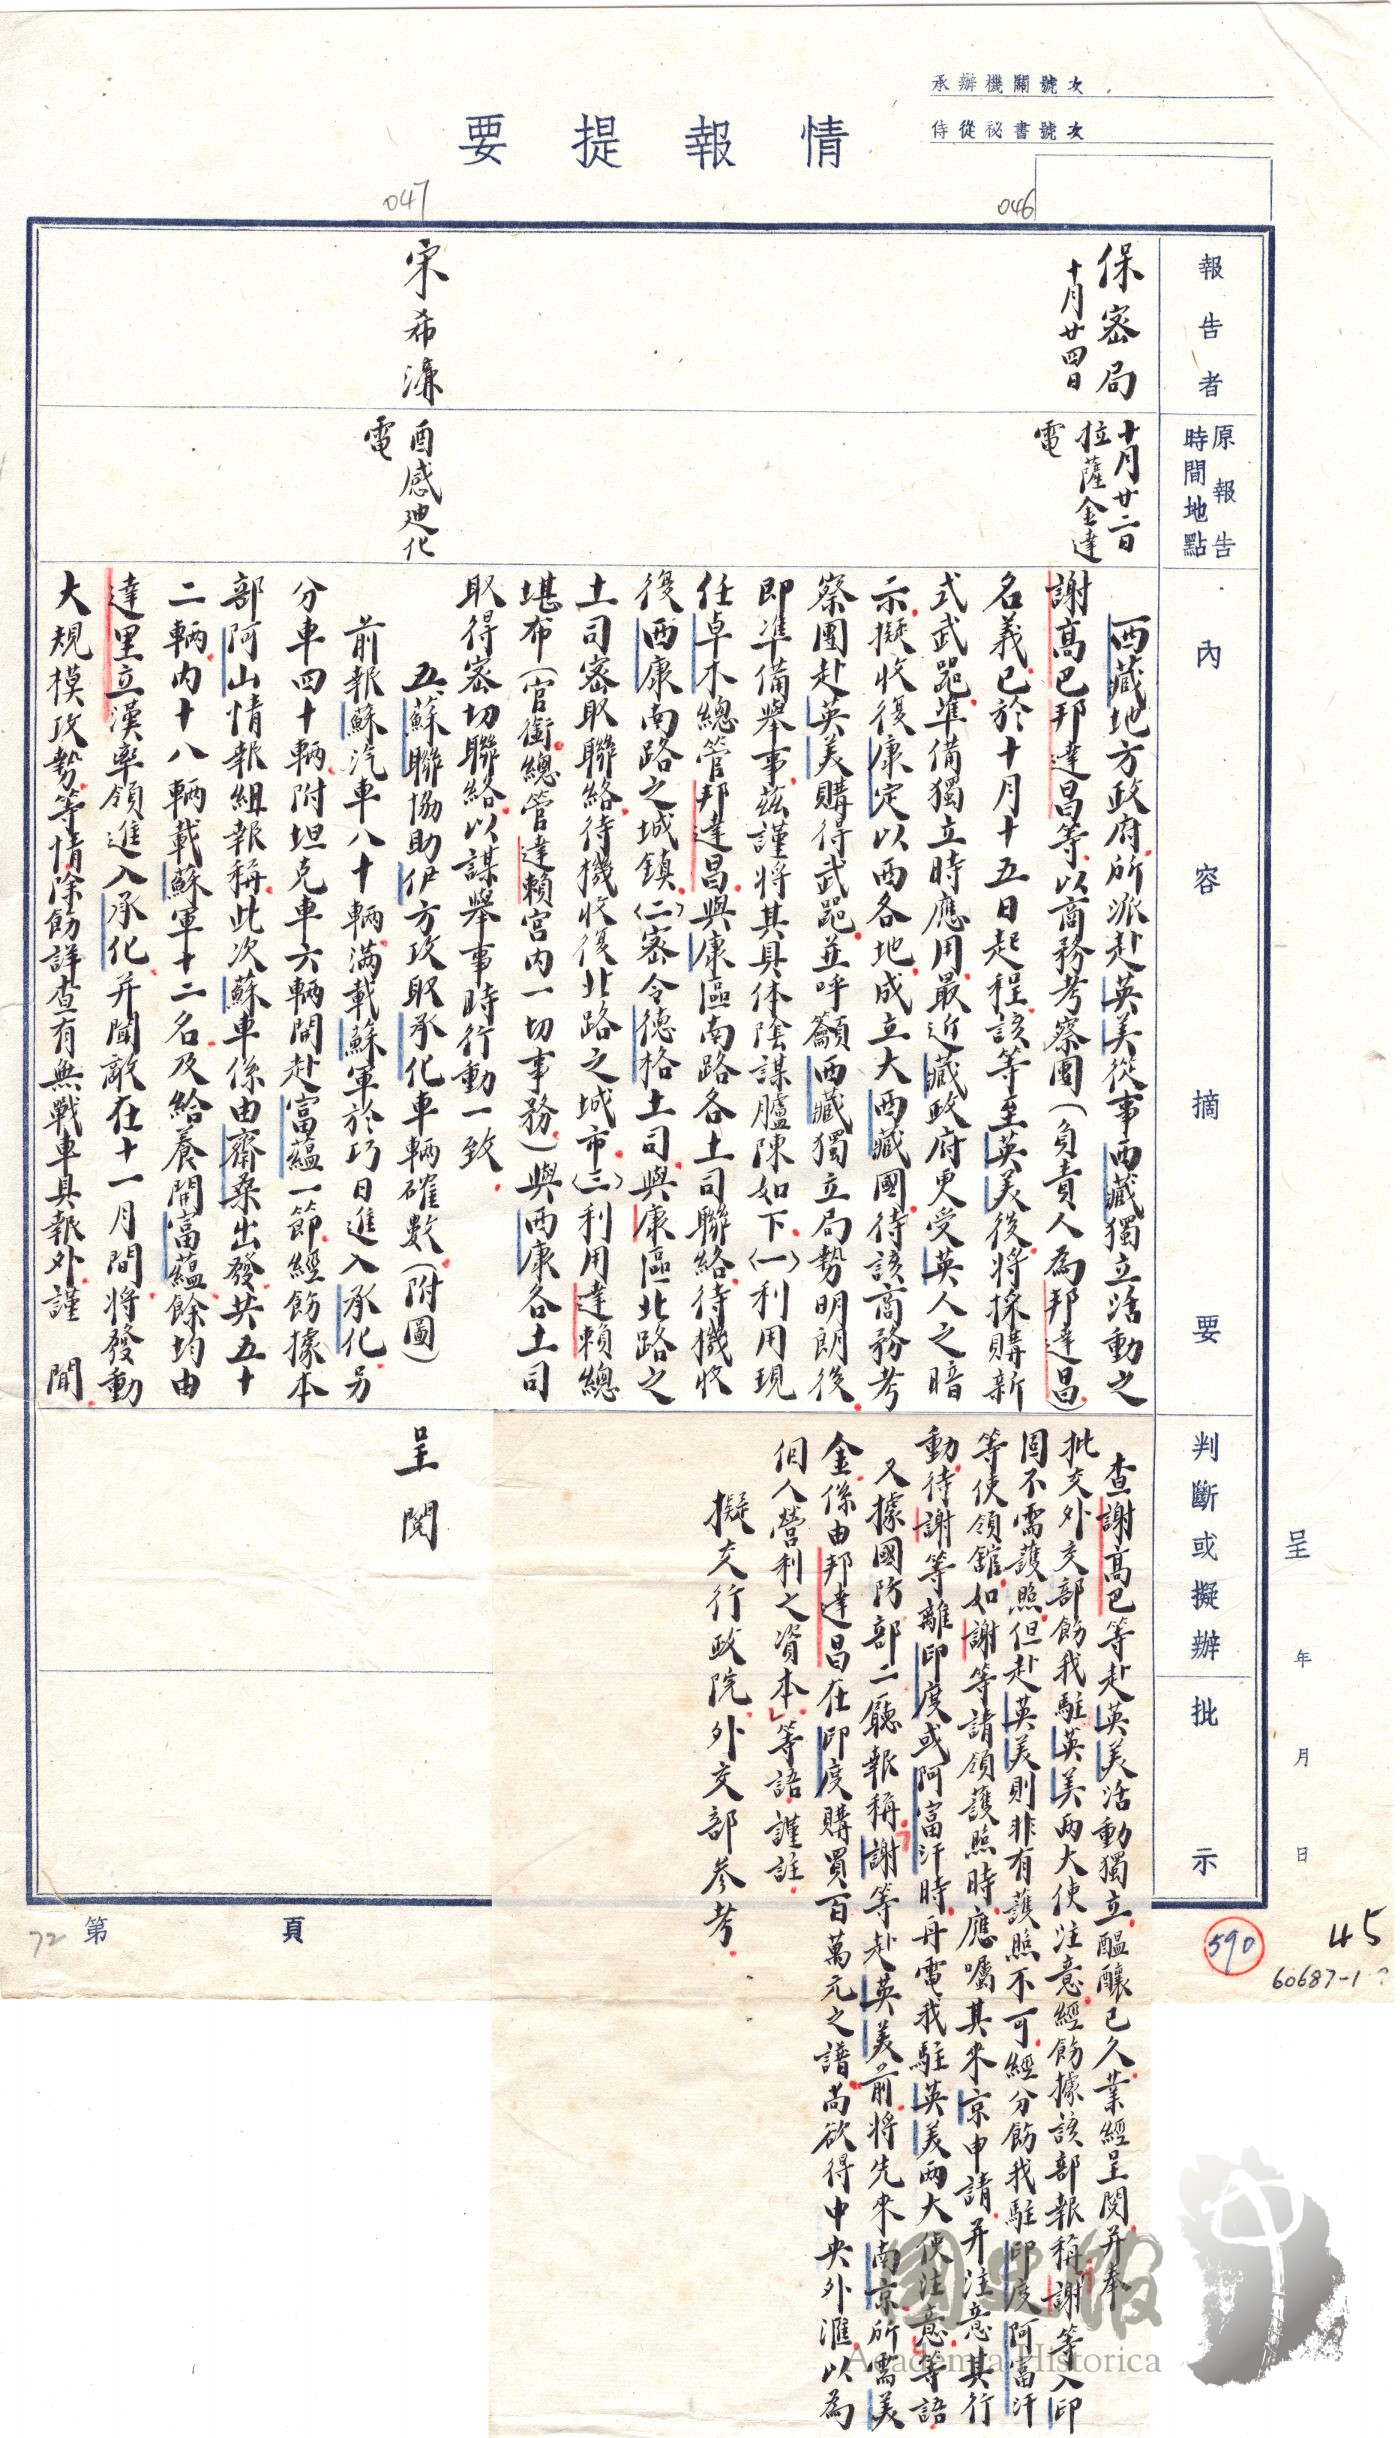 承辦機關號次
侍從祕書號次
情報提要
046
047
報告者
原報告
時間地點
內容摘要
判斷或擬辦
批示
呈 年 月 日
保密局
十月廿四日
十月廿二日
拉薩金達
電
西藏地方政府所派赴英美從事西藏獨立活動之
謝高巴邦達昌等以商務考察團(負責人為邦達昌)
名義已於十月十五日起程該等至英美後將採購新
式武器準備獨立時應用最近藏政府更受英人之暗
示擬收復康定以西各地成立大西藏國待該商務考
察團赴英美購得武器並呼籲西藏獨立局勢明朗後
即準備舉事茲謹將其具体陰謀臚陳如下(一)利用現
任卓木總管邦達昌與康區南路各土司聯絡待機收
復西康南路之城鎮(二)密令德格土司與康區北路之
土司密取聯絡待機收復北路之城市(三)利用達賴總
堪布(官銜總管達賴宮內一切事務)與西康各土司
取得密切聯絡以謀舉事時行動一致
查謝高巴等赴英美活動獨立醞釀已久業經呈閱并奉
批交外交部飭我駐英美兩大使注意經飭據該部報稱謝等入印
固不需護照但赴英美則非有護照不可經分飭我駐印度阿富汗
等使領館如謝等請領護照時應囑其來京申請并注意其行
動待謝等離印度或阿富汗時再電我駐英美兩大使注意等語
又據國防部二廳報稱謝等赴英美前將先來南京所需美
金係由邦達昌在印度購買百萬元之譜尚欲得中央外滙以為
個人營利之資本等語謹註
擬交行政院外交部參考
宋希濂
酉感廸化
電
五、蘇聯協助伊方攻取承化車輛確數(附圖)
前報蘇汽車八十輛滿載蘇軍於巧日進入承化另
分車四十輛附坦克車六輛開赴富蘊一節經飭據本
部阿山情報組報稱此次蘇車係由齋桑出發共五十
二輛內十八輛載蘇軍十二名及給養開富蘊餘均由
達里立漢率領進入承化并聞敵在十一月間將發動
大規模攻勢等情除飭詳查有無戰車具報外謹 聞
呈閱
第 頁
72
590
45
60687-1
國史館
Academia Historica